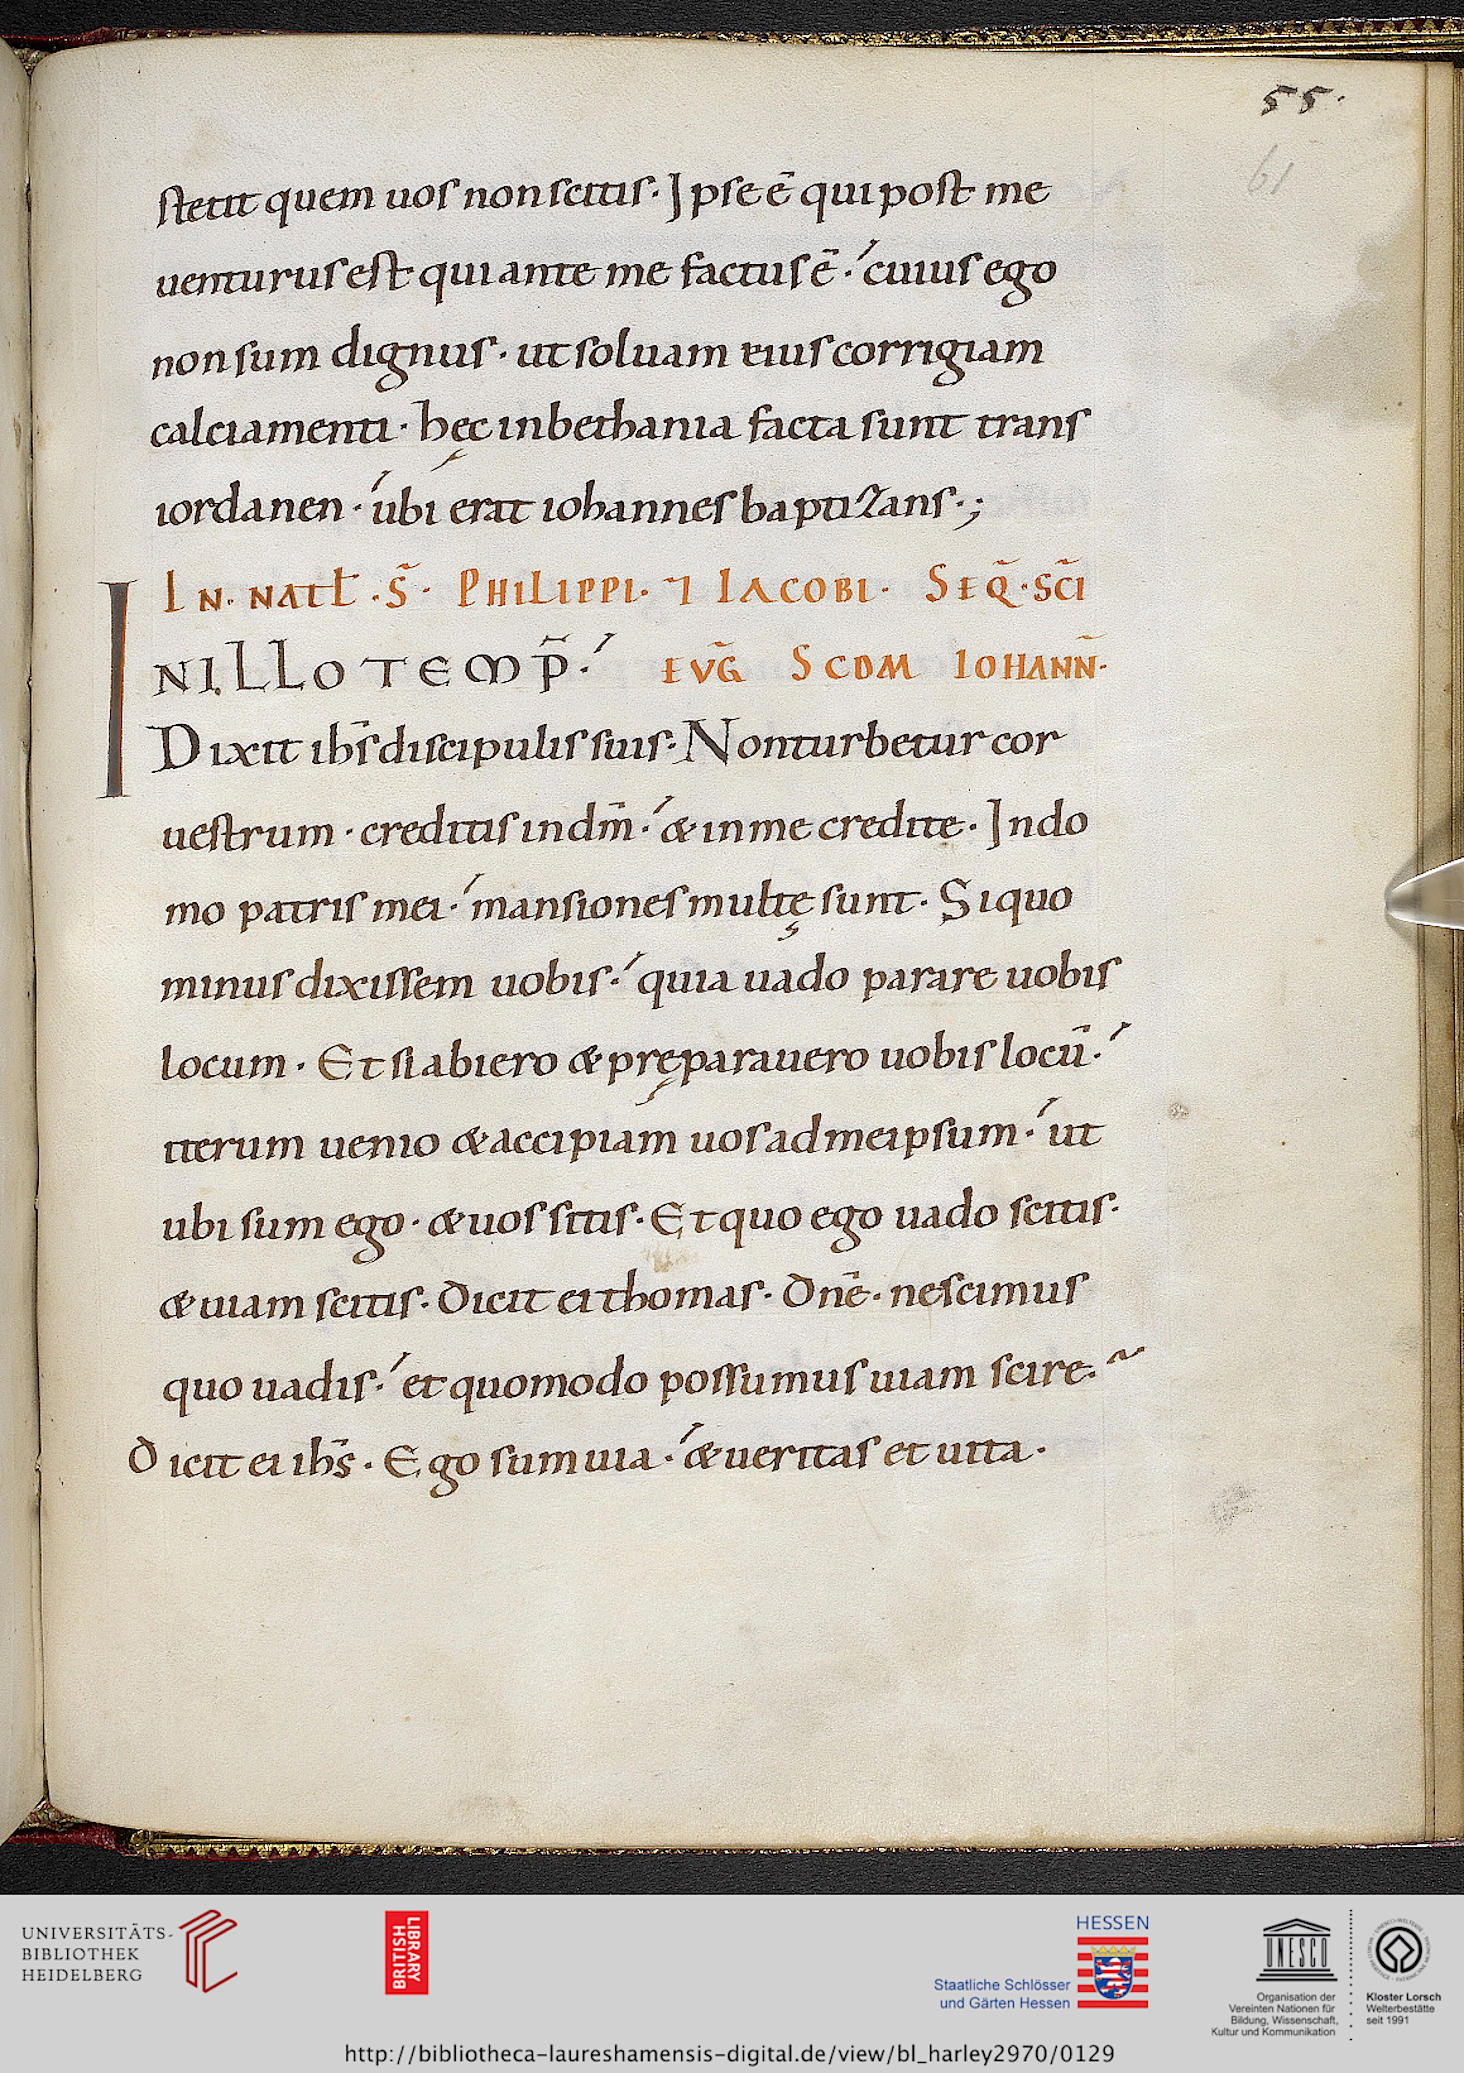 55.
61
stetit quem uos non scitis. Ipse ē qui post me
uenturus est qui ante me factus ē. cuius ego
non sum dignus. ut soluam eius corrigiam
calciamenti. hęc in bethania facta sunt trans
iordanen. ubi erat iohannes baptizans.;
IN. NATL. S̄. PHILIPPI. ⁊ IACOBI. SEQ̄. SC̄I
IN ILLO TEMP̄. EVḠ SCDM IOHANN̄.
Dixit ihs̄ discipulis suis. Non turbetur cor
uestrum. creditis in dm̄. & in me credite. In do
mo patris mei. mansiones multę sunt. Si quo
minus dixissem uobis. quia uado parare uobis
locum. Et si abiero & pręparauero uobis locū.
iterum uenio & accipiam uos ad meipsum. ut
ubi sum ego. & uos sitis. Et quo ego uado scitis.
& uiam scitis. Dicit ei thomas. Dnē. nescimus
quo uadis. et quomodo possumus uiam scire.
Dicit ei ihs̄. Ego sum uia. & ueritas et uita.
UNIVERSITÄTS-
BIBLIOTHEK
HEIDELBERG
BRITISH
LIBRARY
HESSEN
Staatliche Schlösser
und Gärten Hessen
UNESCO
Organisation der
Vereinten Nationen für
Bildung, Wissenschaft,
Kultur und Kommunikation
Kloster Lorsch
Welterbestätte
seit 1991
http://bibliotheca-laureshamensis-digital.de/view/bl_harley2970/0129